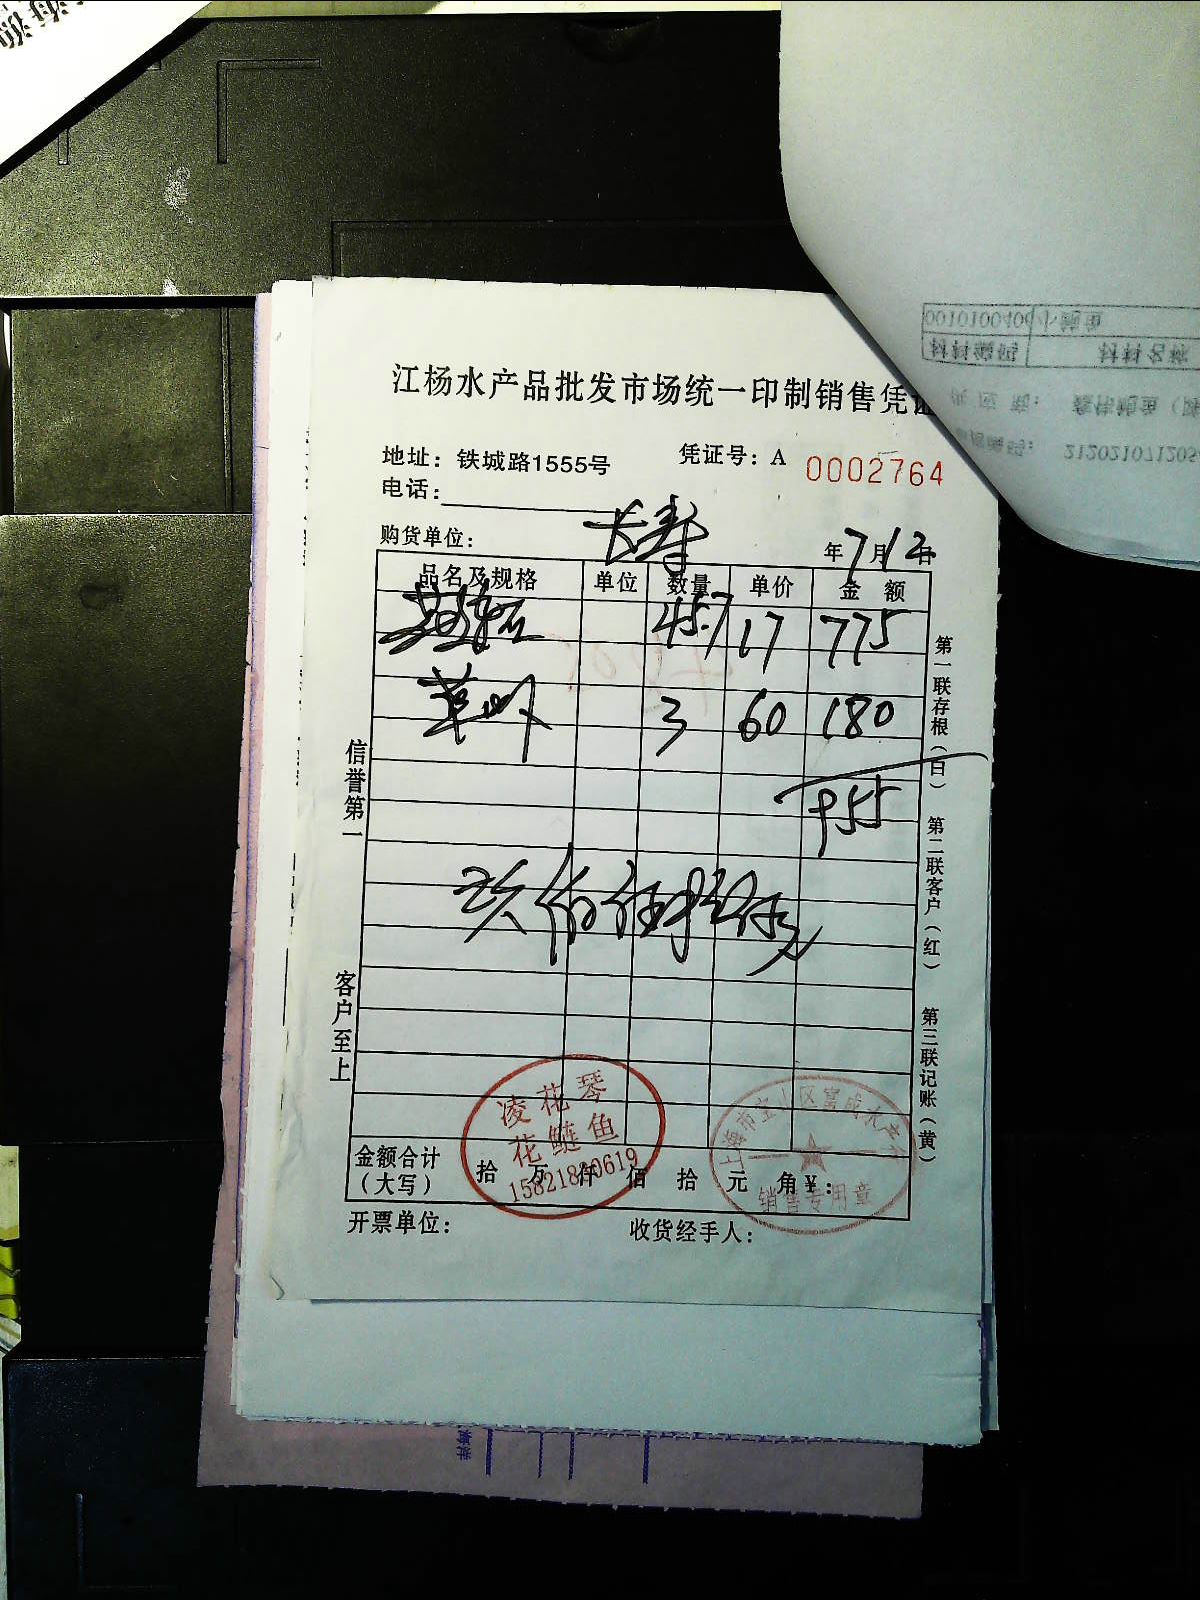 江杨水产品批发市场统一印制销售凭
地址：铁城路1555号
凭证号：A 0002764
电话：
购货单位：长寿
年7月12日
品名及规格 单位 数量 单价 金额
45.7 17 775
草 3 60 180
955
玖佰伍拾伍元
信誉第一
客户至上
第一联存根（白）
第二联客户（红）
第三联记账（黄）
凌花琴
花鲢鱼
15821880619
上海市宝山区富成水产行
销售专用章
金额合计（大写） 拾 万 仟 佰 拾 元 角￥：
开票单位： 收货经手人：
0010100400 小鲍鱼
材料编码 材料名称